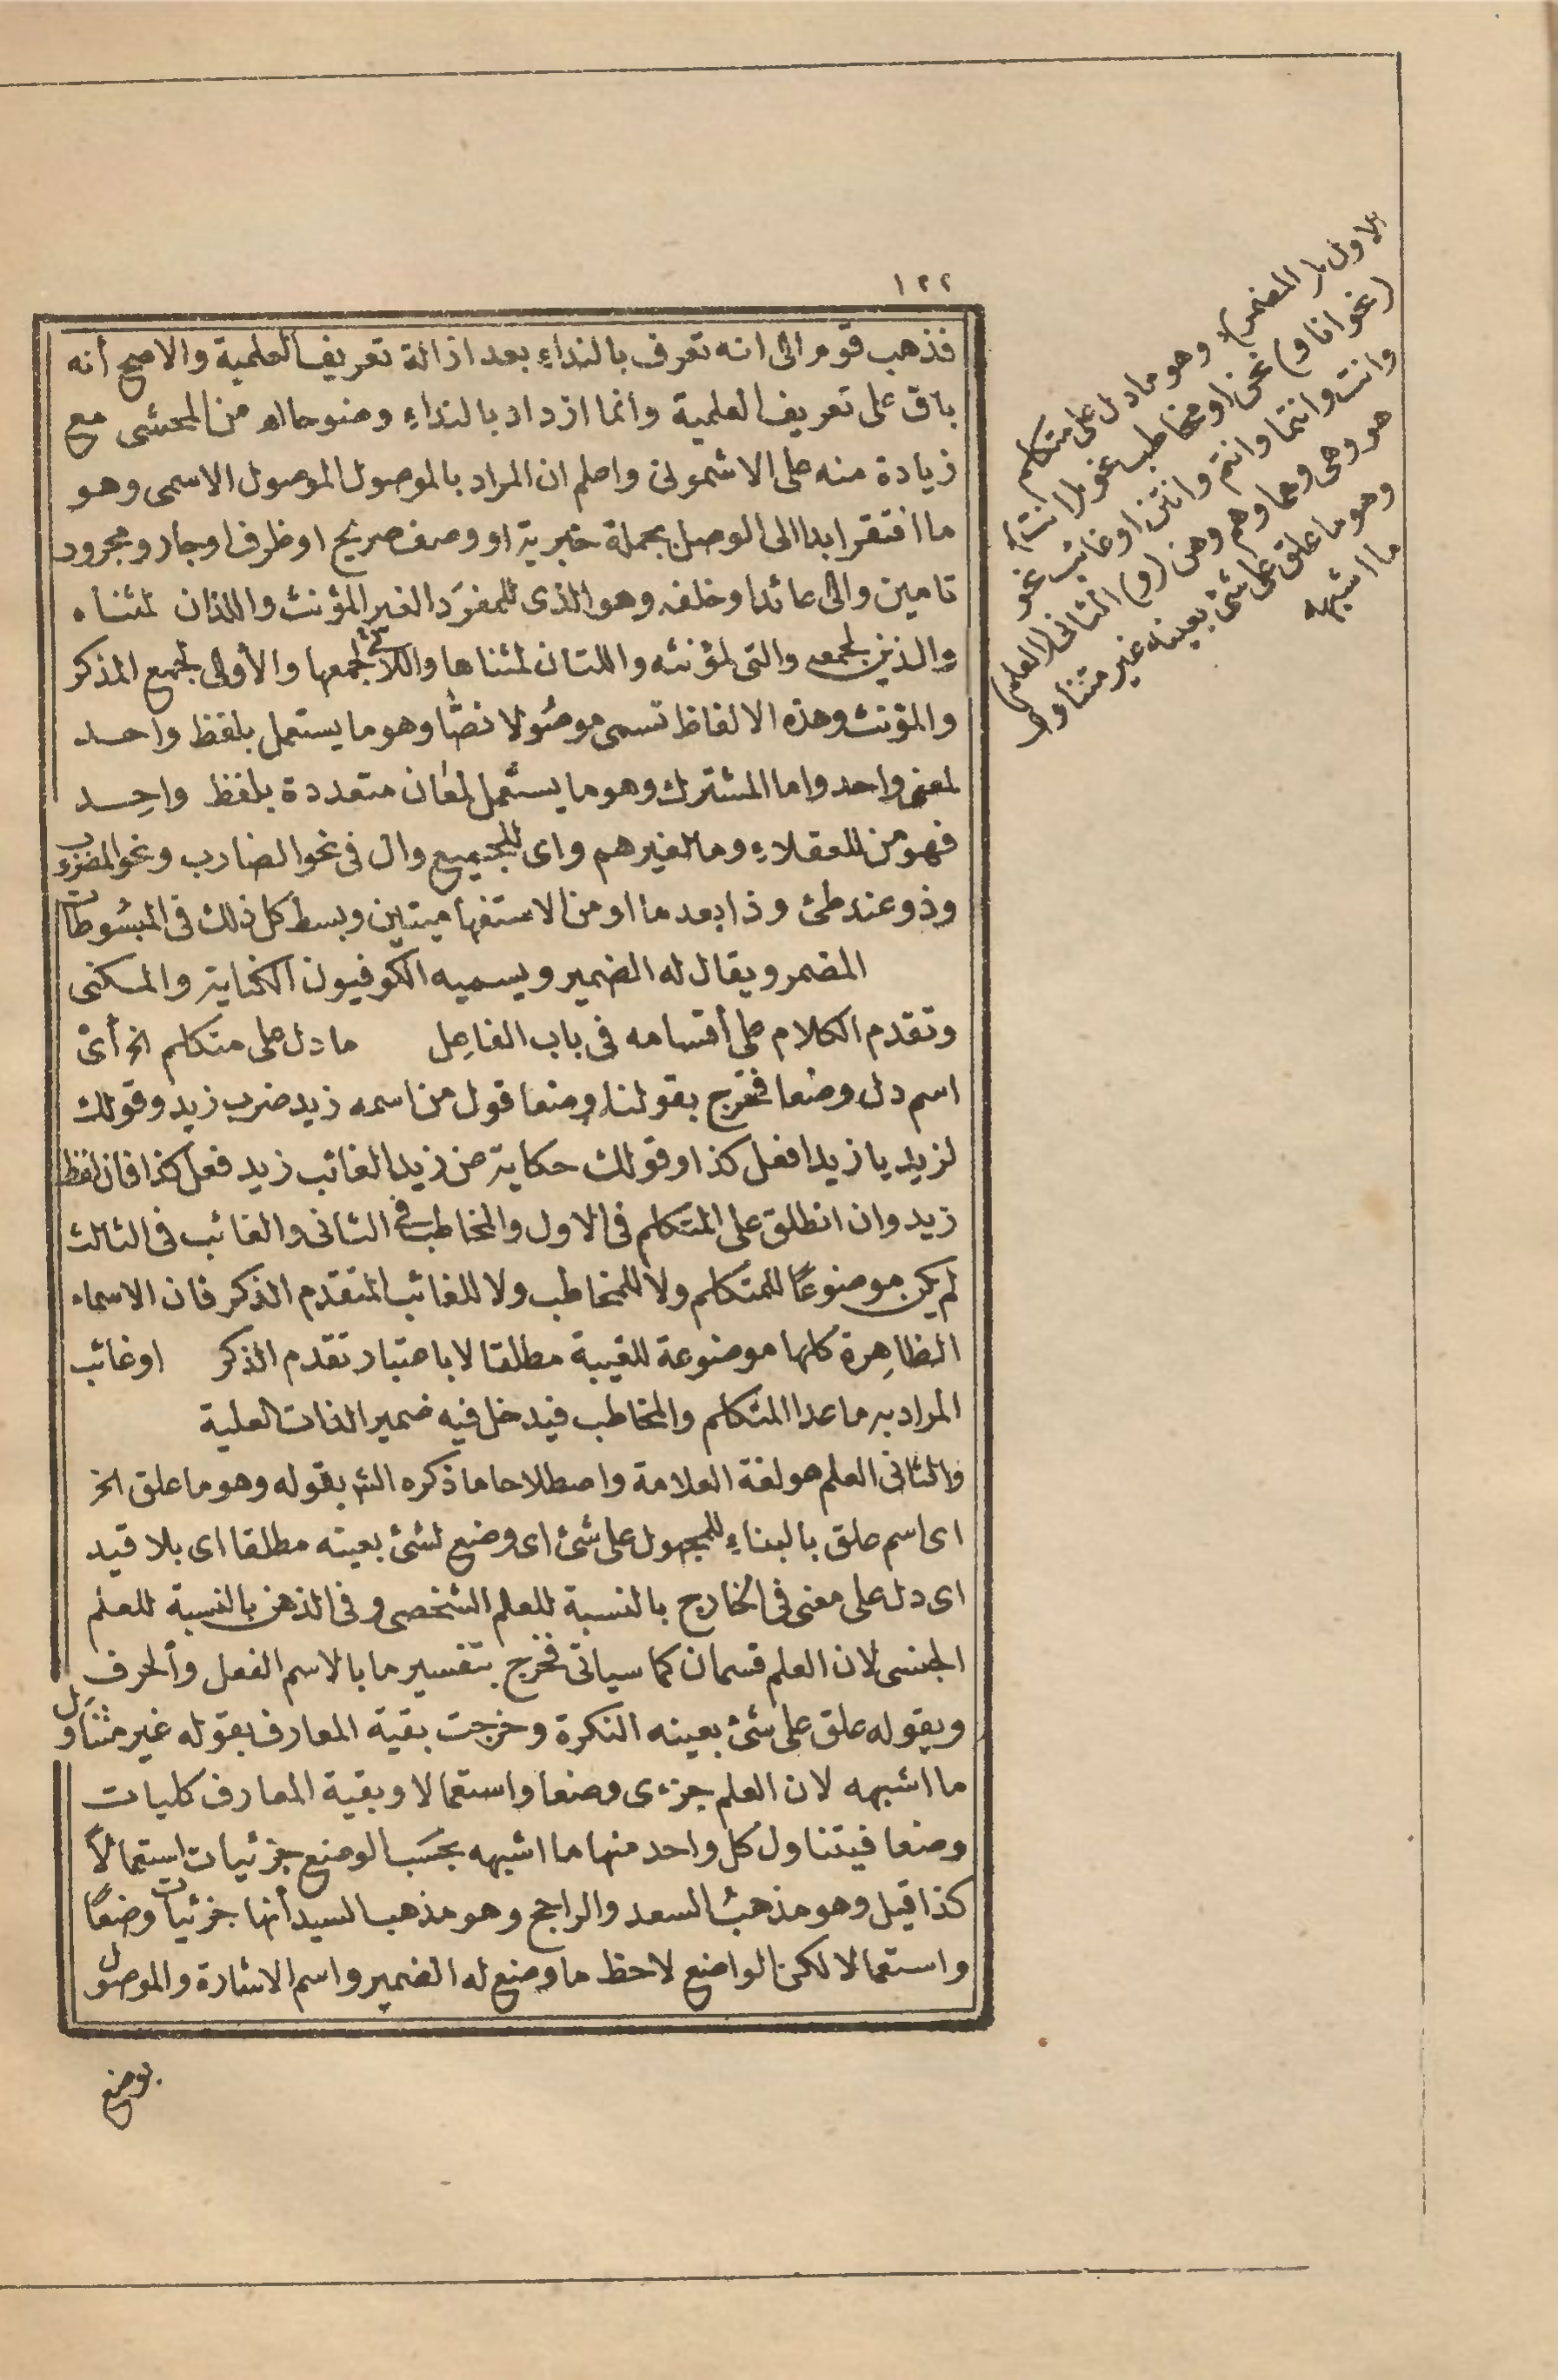 ١٢٢
فذهب قوم الى انه تعرف بالنداء بعد ازالة تعريف العلمية والاصح أنه
باق على تعريف العلمية وانما ازداد بالنداء وضوحا اه من المحشى مع
زيادة منه على الاشمونى واعلم ان المراد بالموصول الموصول الاسمى وهو
ما افتقر ابدا الى الوصل بجملة خبرية او وصف صريح او ظرف او جار ومجرور
تامين والى عائد او خلفه وهو الذى للمفرد الغير المؤنث واللذان لمثناه
والذين لجمعه والتى لمؤنثه واللتان لمثناها واللائى لجمعها والأولى لجمع المذكر
والمؤنث وهذه الالفاظ تسمى موصولا نصا وهو ما يستعمل بلفظ واحد
لمعنى واحد واما المشترك وهو ما يستعمل لمعان متعددة بلفظ واحد
فهو من للعقلاء وما لغيرهم واى للجميع وال فى نحو الضارب ونحو المضروب
وذو عند طئ وذا بعد ما او من الاستفهاميتين وبسط كل ذلك فى المبسوطات
المضمر ويقال له الضمير ويسميه الكوفيون الكناية والمكنى
وتقدم الكلام على أقسامه فى باب الفاعل ما دل على متكلم الخ أى
اسم دل وضعا فخرج بقولنا وضعا قول من اسمه زيد ضرب زيد وقولك
لزيد يا زيد افعل كذا وقولك حكاية عن زيد الغائب زيد فعل كذا فان لفظ
زيد وان انطلق على المتكلم فى الاول والمخاطب فى الثانى والغائب فى الثالث
لم يكن موضوعًا للمتكلم ولا للمخاطب ولا للغائب المتقدم الذكر فان الاسماء
الظاهرة كلها موضوعة للغيبة مطلقا لا باعتبار تقدم الذكر او غائب
المراد به ما عدا المتكلم والمخاطب فيدخل فيه ضمير الذات العلية
والثانى العلم هو لغة العلامة واصطلاحا ما ذكره الش بقوله وهو ما علق الخ
اى اسم علق بالبناء للمجهول على شئ اى وضع لشئ بعينه مطلقا اى بلا قيد
اى دل على معنى فى الخارج بالنسبة للعلم الشخصى وفى الذهن بالنسبة للعلم
الجنسى لان العلم قسمان كما سياتى فخرج بتفسير ما بالاسم الفعل وألحرف
وبقوله علق على شئ بعينه النكرة وخرجت بقية المعارف بقوله غير متناول
ما اشبهه لان العلم جزءى وضعا واستعمالا وبقية المعارف كليات
وضعا فيتناول كل واحد منها ما اشبهه بحسب الوضع جزئيات استعمالاً
كذا قيل وهو مذهب السعد والراجح وهو مذهب السيد أنها جزئيات وضعًا
واستعمالا لكن الواضع لاحظ ما وضع له الضمير واسم الاشارة والموصول
بوضع
الاول (المضمر) وهو ما دل على متكلم
(نحو انا و) نحن او مخاطب نحو (انت)
وانت وانتما وانتم وانتن او غائب نحو
هو وهى وهما وهم وهن (و) الثانى (العلم)
وهو ما علق على شئ بعينه غير متناول
ما اشبهه